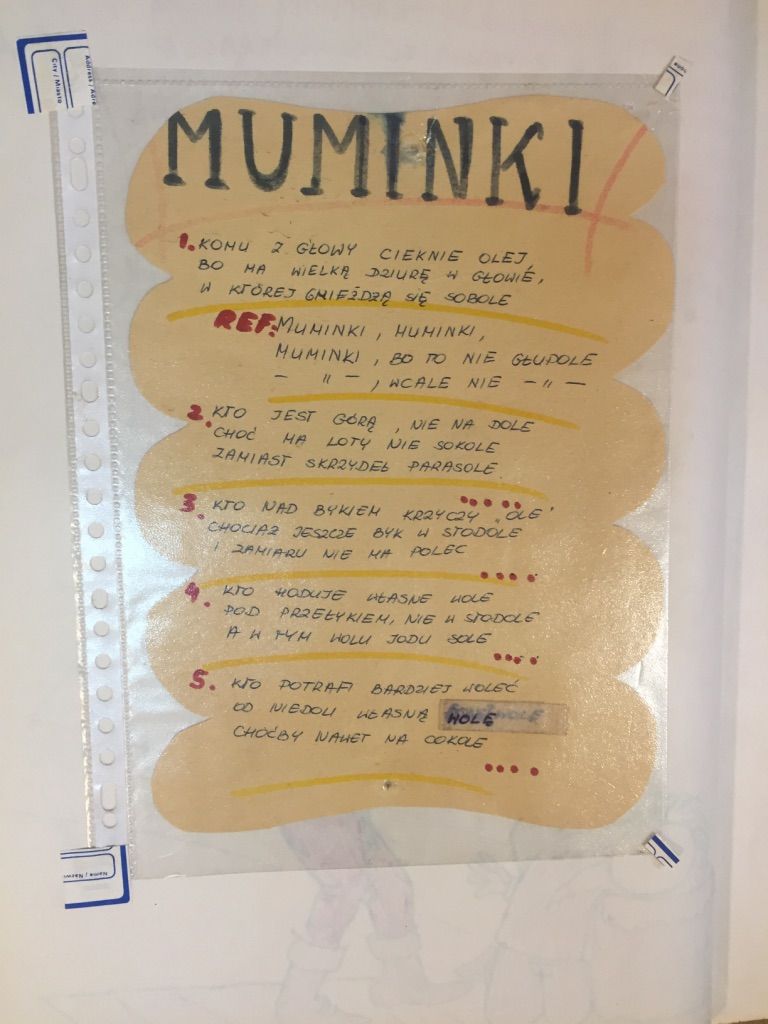 Address / Adre
City / Miasto
MUMINKI
1. KOMU Z GŁOWY CIEKNIE OLEJ,
BO MA WIELKĄ DZIURĘ W GŁOWIE,
W KTÓREJ GNIEŹDŻĄ SIĘ SOBOLE
REF: MUMINKI, MUMINKI,
MUMINKI, BO TO NIE GŁUPOLE
— " —, WCALE NIE — " —
2. KTO JEST GÓRĄ, NIE NA DOLE
CHOĆ MA LOTY NIE SOKOLE
ZAMIAST SKRZYDEŁ PARASOLE
3. KTO NAD BYKIEM KRZYCZY „OLE"
CHOCIAŻ JESZCZE BYK W STODOLE
I ZAMIARU NIE MA POLEC
4. KTO HODUJE WŁASNE WOLE
POD PRZEŁYKIEM, NIE W STODOLE
A W TYM WOLU JODU SOLE
5. KTO POTRAFI BARDZIEJ WOLEĆ
OD NIEDOLI WŁASNĄ WOLĘ
CHOĆBY NAWET NA COKOLE
Name / Nazwi